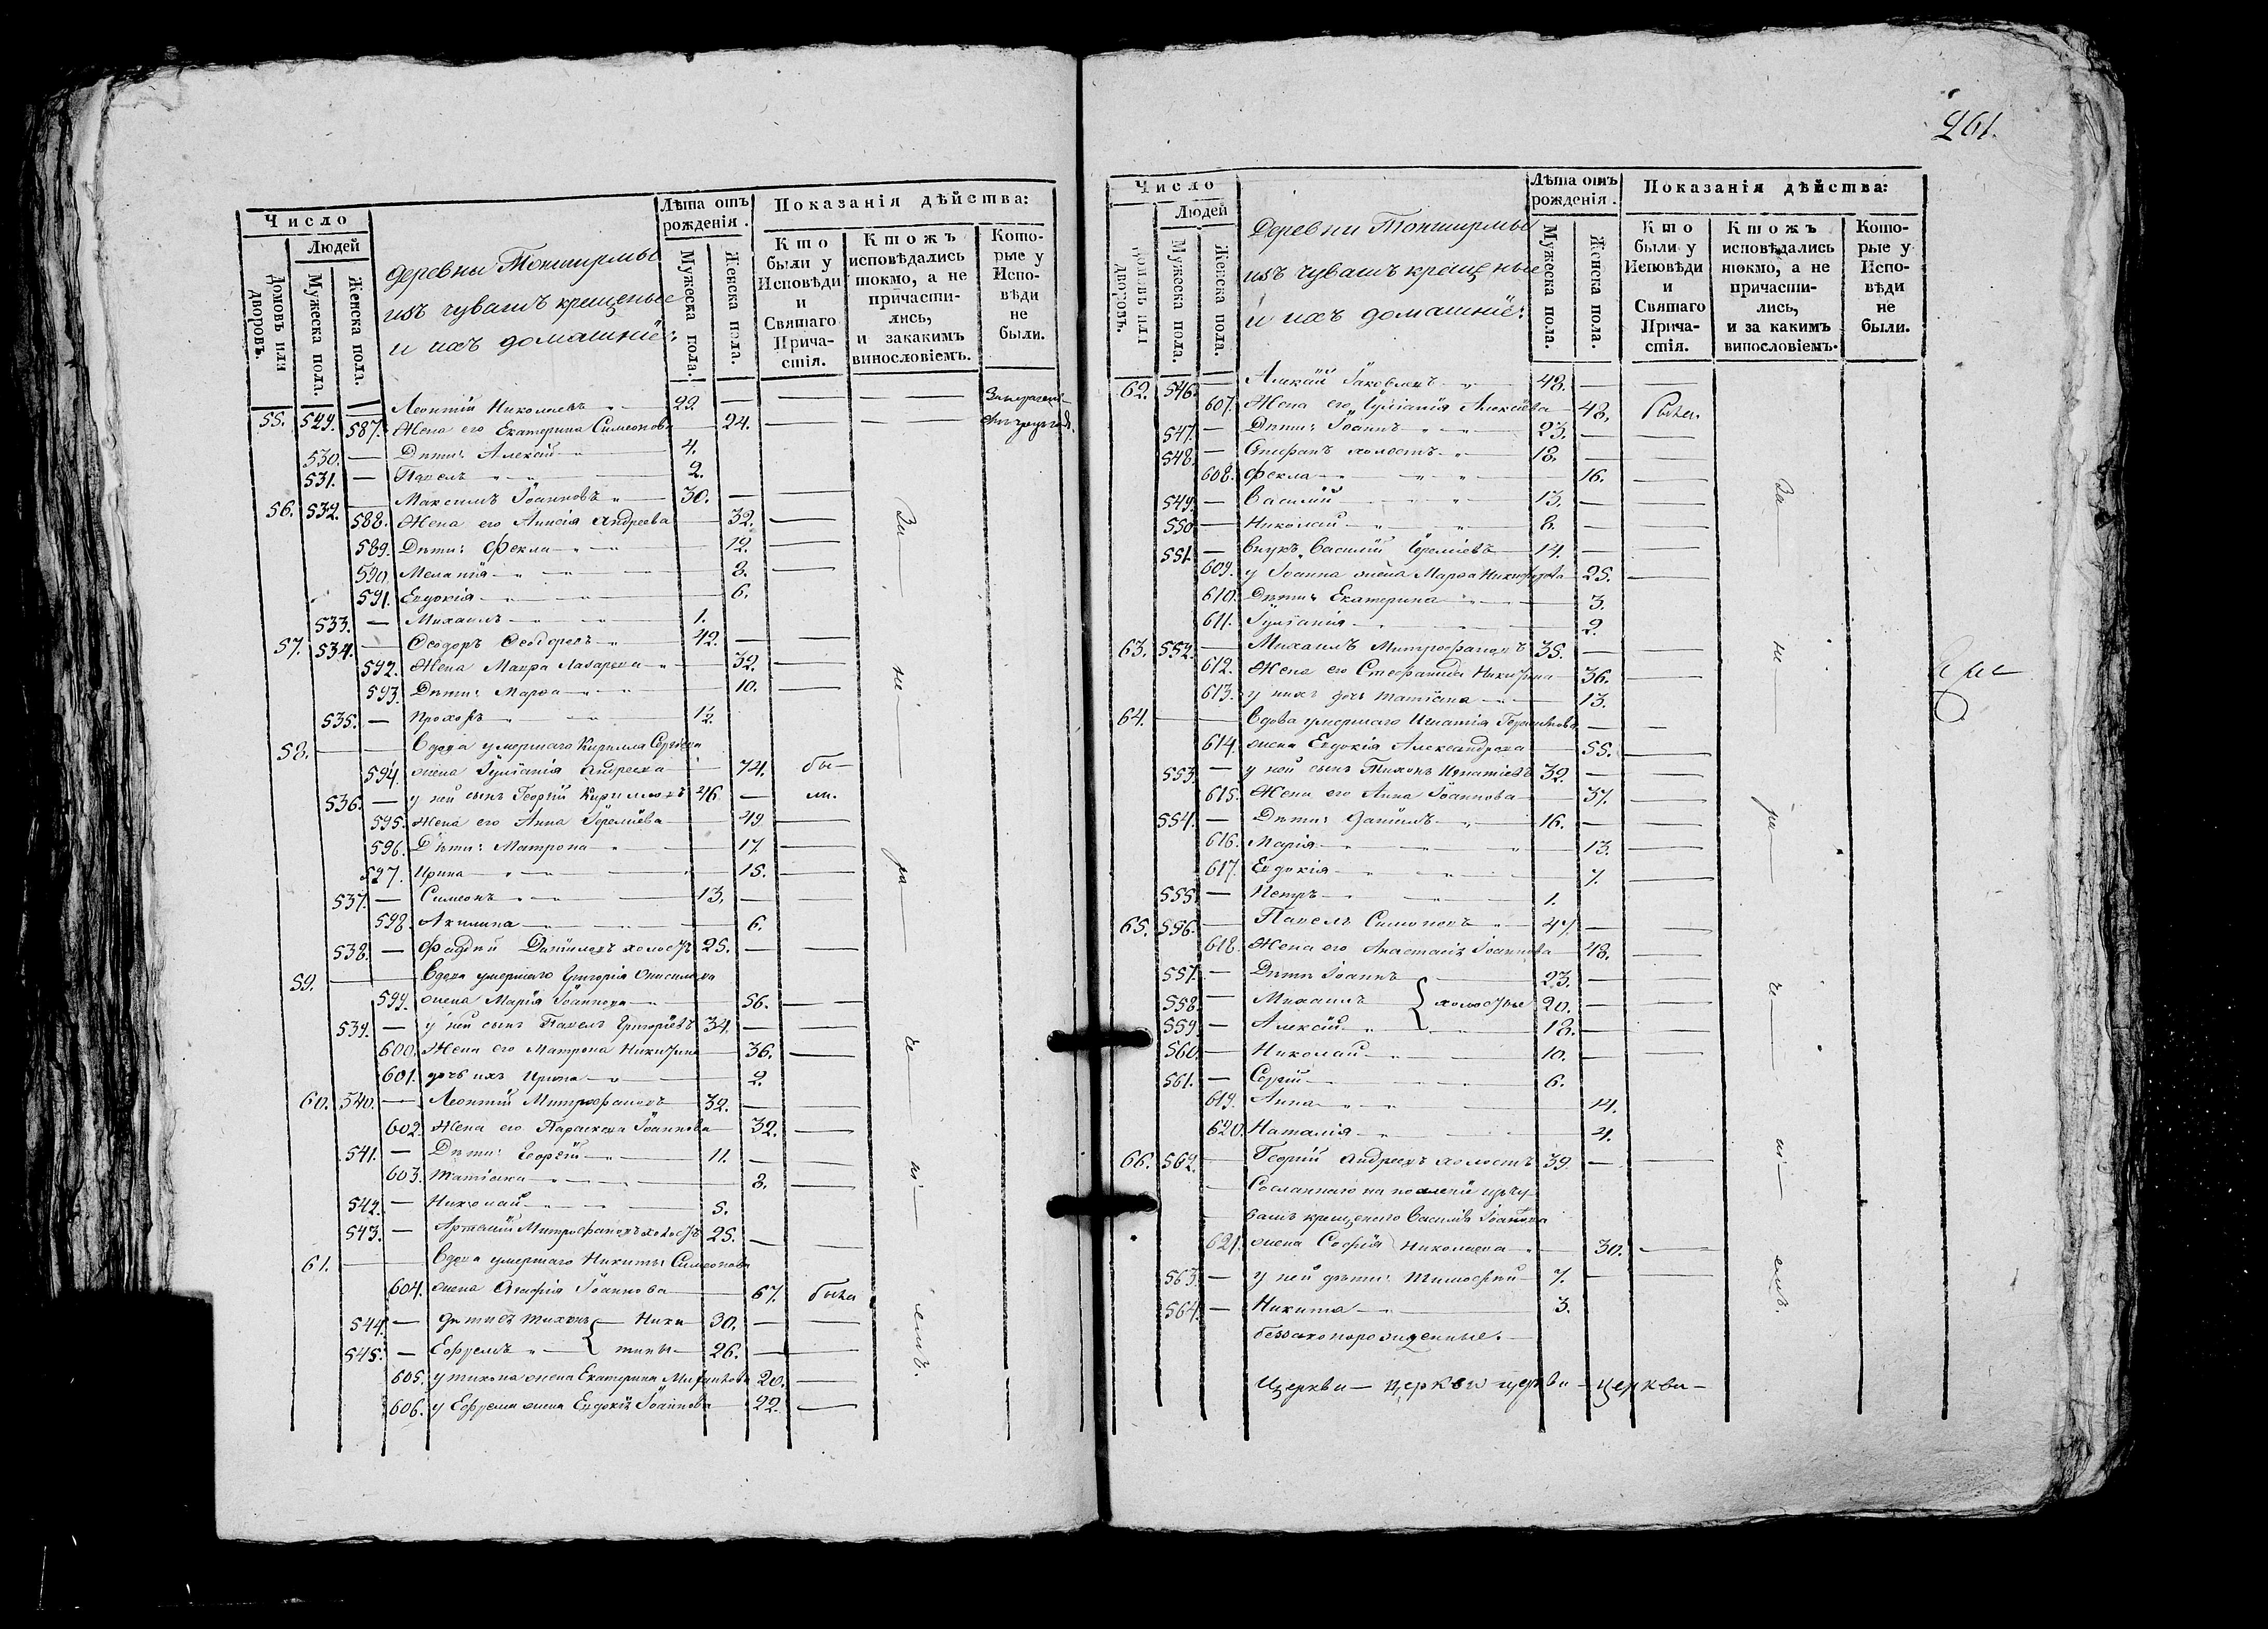 Число
Людей
Домовъ или дворовъ.
Мужеска пола.
Женска пола.
деревны Тонширмы
изъ чувашъ крещеные
и ихъ домашніе:
Лѣта отъ рожденія.
Мужеска пола.
Женска пола.
Показанія дѣйства:
Кто были у Исповѣди и Святаго Причастія.
Ктожъ исповѣдались токмо, а не причастились, и закакимъ винословіемъ.
Которые у Исповѣди не были.
55. 529. — Леонтій Николаевъ 29. — —
587. Жена его Екатерина Симеонова 24. —
530. — Дѣти: Алексій 4.
531. — Павелъ 2.
56. 532. — Максимъ Іоанновъ 30. — —
588. Жена его Анисія Андреева 32. —
589. Дѣти: Фекла 12. —
590. Меланія 8. —
591. Евдокія 6.
533. — Михаилъ 1.
57. 534. — Ѳеодоръ Ѳеодоровъ 42. — —
592. Жена Мавра Лазарева 32. —
593. Дѣти: Марѳа 10. —
535. — Прохоръ 1/2.
58. — — Вдова умершаго Кирилла Сергѣева
594. жена Іуліанія Андреева 74. бы—
536. — у ней сынъ Георгій Кирилловъ 46. — ли.
595. Жена его Анна Іереміева 49. —
596. Дѣти: Матрона 17. —
597. Ирина 15. —
537. — Симеонъ 13. — —
598. Акилина 6.
538. — Фаддей Даніиловъ холостъ 25. — —
59. — — Вдова умершаго Григорія Онисимова
599. жена Марія Іоаннова 56. —
539. — у ней сынъ Павелъ Григоріевъ 34. — —
600. Жена его Матрона Никитина 36. —
601. дочь ихъ Ирина 2.
60. 540. — Леонтій Митрофановъ 32. — —
602. Жена его Параскева Іоаннова 32. —
541. — Дѣти: Георгій 11. — —
603. Татіана 8. —
542. — Николай 5.
543. — Артемій Митрофановъ холостъ 25. — —
61. — — Вдова умершаго Никиты Симеонова
604. жена Агафія Іоаннова 67. была
544. — дѣти ея Тихонъ — Ники 30. — —
545. — Ефремъ { тины 26. — —
605. у Тихона жена Екатерина 20. —
606. у Ефрема жена Евдокія Іоаннова 22. —
За— не— ра— че— ні— емъ.
261.
Число
Людей
Домовъ или дворовъ.
Мужеска пола.
Женска пола.
Деревни Тонширмы
изъ чувашъ крещеные
и ихъ домашніе:
Лѣта отъ рожденія.
Мужеска пола.
Женска пола.
Показанія дѣйства:
Кто были у Исповѣди и Святаго Причастія.
Ктожъ исповѣдались токмо, а не причастились, и за какимъ винословіемъ.
Которые у Исповѣди не были.
62. 546. — Алексій Іаковлевъ 48. — —
607. Жена его Іуліанія Алексіева 48. была
547. — Дѣти: Іоаннъ 23. — —
548. — Стефанъ холостъ 18. — —
608. Фекла 16. —
549. — Василій 13. — —
550. — Николай 8. — —
551. — Внукъ Василій Іереміевъ 14. — —
609. у Іоанна жена Марѳа Никифорова 25. —
610. Дѣти: Екатерина 3.
611. Іуліанія 2.
63. 552. — Михаилъ Митрофановъ 35. — —
612. Жена его Стефанида Никитина 36. —
613. у нихъ дочь Татіана 13.
64. — — Вдова умершаго Игнатія — —
614. жена Евдокія Александрова 55. —
553. — у ней сынъ Тихонъ Игнатіевъ 32. — —
615. Жена его Анна Іоаннова 37. —
554. — Дѣти: Даніилъ 16. — —
616. Марія 13. —
617. Евдокія 7. —
555. — Петръ 1.
65. 556. — Павелъ Симоновъ 47. — —
618. Жена его Анастасія Іоаннова 48. —
557. — Дѣти Іоаннъ 23. — —
558. — Михаилъ { холостые 20. — —
559. — Алексій 18. — —
560. — Николай 10. — —
561. — Сергій 6.
619. Анна 14.
620. Наталія 4.
66. 562. — Георгій Андреевъ холостъ 39. — —
Сосланнаго на поселеніе изъ чу-
вашъ крещенаго Василія Іоаннова
621. жена Софія Николаева 30. —
563. — у ней дѣти: Тимофей 7. — —
564. — Никита 3.
беззаконорожденные.
Церкви — церкви церкви — церкви —
За— не— ра— че— ні— емъ.